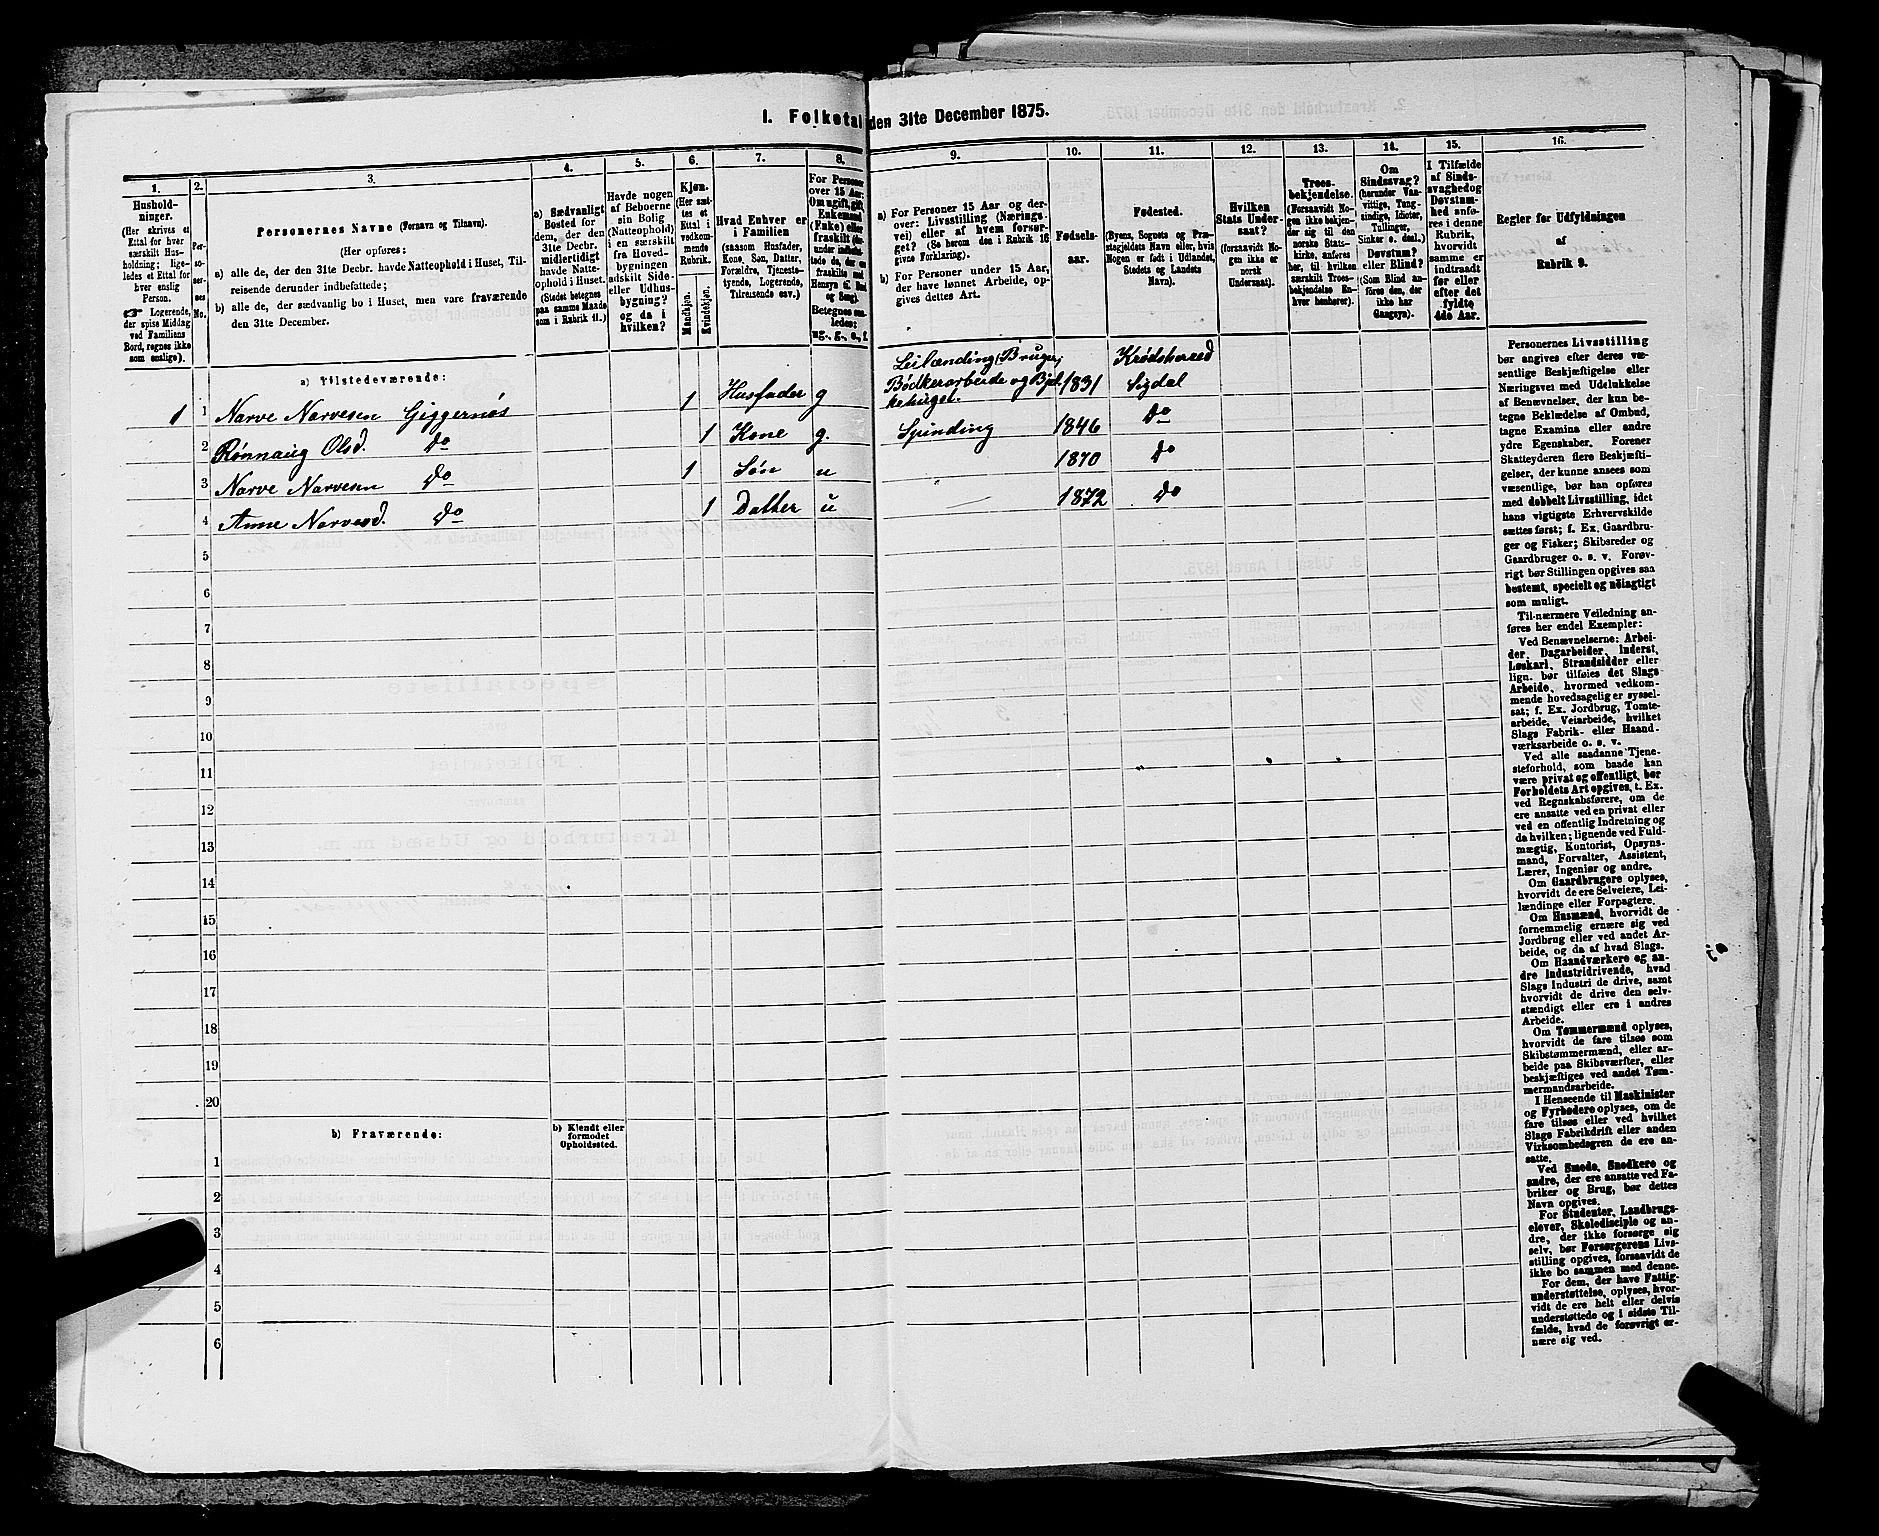 I. Folketal den 31te December 1875.
1. 2. 3. 4. 5. 6. 7. 8. 9. 10. 11. 12. 13. 14. 15. 16.
Hushold-
ninger.
(Her skrives et
Ettal for hver
særskilt Hus-
holdning; lige-
ledes et Ettal for
hver enslig
Person.
☞ Logerende,
der spise Middag
ved Familiens
Bord, regnes ikke
som enslige).
Per-
so-
ner-
nes
No.
Personernes Navne (Fornavn og Tilnavn).
(Her opføres:
a) alle de, der den 31te Decbr. havde Natteophold i Huset, Til-
reisende derunder indbefattede;
b) alle de, der sædvanlig bo i Huset, men vare fraværende
den 31te December.
a) Sædvanligt
Bosted for
dem, der den
31te Decbr.
midlertidigt
havde Natte-
ophold i Huset.
(Stedet betegnes
paa samme Maade
som i Rubrik 11.)
Havde nogen
af Beboerne
sin Bolig
(Natteophold)
i en særskilt
fra Hoved-
bygningen
adskilt Side-
eller Udhus-
bygning?
og da i
hvilken?
Kjøn.
(Her sæt-
tes et
Ettal i
vedkom-
mende
Rubrik.
Mandkjøn.
Kvindekjøn.
Hvad Enhver er
i Familien
(saasom Husfader,
Kone, Søn, Datter,
Forældre, Tjeneste-
tyende, Logerende,
Tilreisende osv.)
For Personer
over 15 Aar:
Om ugift, gift,
Enkemand
(Enke) eller
fraskilt
Betegnes saa-
ledes:
ug., g., e., f.
a) For Personer 15 Aar og der-
over: Livsstilling (Nærings-
vei) eller af hvem forsør-
get? (Se herom den i Rubrik 16
givne Forklaring).
b) For Personer under 15 Aar,
der have lønnet Arbeide, op-
gives dettes Art.
Fødsels-
aar.
Fødested.
(Byens, Sognets og Præ-
stegjeldets Navn eller, hvis
Nogen er født i Udlandet,
Stedets og Landets
Navn).
Hvilken
Stats Under-
saat?
(forsaavidt No-
gen ikke er
norsk
Undersaat).
Troes-
bekjendelse.
(Forsaavidt No-
gen ikke bekjen-
der sig til den
norske Stats-
kirke, anføres
her, til hvilken
særskilt Troes-
bekjendelse En-
hver henhører).
Om
Sindssvag?
(herunder Van-
vittige, Tung-
sindige, Idioter,
Tullinger,
Sinker o. desl.)
Døvstum?
eller Blind?
(Som Blind an-
føres den, der
ikke har
Gangsyn).
I Tilfælde
af Sinds-
svaghed og
Døvstum-
hed anfø-
res i denne
Rubrik,
hvorvidt
samme er
indtraadt
før eller
efter det
fyldte
4de Aar.
Regler for Udfyldningen
af
Rubrik 9.
a) Tilstedeværende:
1 1 Narve Narvesen Giggernøs 1 Husfader g Leilænding (Bruger, Bødkerarbeide og 1831 Krødshered Sigdal
2 Rønnaug Olsd. Do 1 Kone g. Spinding 1846 Do
3 Narve Narvesen Do 1 Søn u " 1870 Do
4 Anne Narvesd. Do 1 Datter u 1872 Do
5
6
7
8
9
10
11
12
13
14
15
16
17
18
19
20
b) Fraværende:
b) Kjendt eller
formodet
Opholdssted.
1
2
3
4
5
6
Personernes Livsstilling
bør angives efter deres væ-
sentlige Beskjæftigelse eller
Næringsvei med Udelukkelse
af Benævnelser, der kun be-
tegne Beklædelse af Ombud,
tagne Examina eller andre
ydre Egenskaber. Forener
Skatteyderen flere Beskjæfti-
gelser, der kunne ansees som
væsentlige, bør han opføres
med dobbelt Livsstilling, idet
hans vigtigste Erhvervskilde
sættes først; f. Ex. Gaardbru-
ger og Fisker; Skibsreder og
Gaardbruger o. s. v. Forøv-
rigt bør Stillingen opgives saa
bestemt, specielt og nöiagtigt
som muligt.
Til nærmere Veiledning an-
føres her endel Exempler:
Ved Benævnelserne: Arbei-
der, Dagarbeider, Inderst,
Løskarl, Strandsidder eller
lign. bør tilføies det Slags
Arbeide, hvormed vedkom-
mende hovedsagelig er syssel-
sat; f. Ex. Jordbrug, Tomte-
arbeide, Veiarbeide, hvilket
Slags Fabrik- eller Haand-
værksarbeide o. s. v.
Ved alle saadanne Tjene-
steforhold, som baade kan
være privat og offentligt, bør
Forholdets Art opgives, t. Ex.
ved Regnskabsførere, om de
ere ansatte ved en privat eller
ved en offentlig Indretning og
da hvilken; lignende ved Fuld-
mægtig, Kontorist, Opsyns-
mand, Forvalter, Assistent,
Lærer, Ingeniør og andre.
Om Gaardbrugere oplyses,
hvorvidt de ere Selveiere, Lei-
lændinge eller Forpagtere.
Om Husmænd, hvorvidt de
fornemmelig ernære sig ved
Jordbrug eller ved andet Ar-
beide, og da af hvad Slags.
Om Haandværkere og an-
dre Industridrivende, hvad
Slags Industri de drive, samt
hvorvidt de drive den selv-
stændigt eller ere i andres
Arbeide.
Om Tømmermænd oplyses,
hvorvidt de fare tilsøs som
Skibstømmermænd, eller ar-
beide paa Skibsværfter, eller
beskjæftiges ved andet Tøm-
mermandsarbeide.
I Henseende til Maskinister
og Fyrbødere oplyses, om de
fare tilsøs eller ved hvilket
Slags Fabrikdrift eller anden
Virksomhedsgren de ere an-
satte.
Ved Smede, Snedkere og
andre, der ere ansatte ved Fa-
briker og Brug, bør dettes
Navn opgives.
For Studenter, Landbrugs-
elever, Skoledisciple og an-
dre, der ikke forsørge sig
selv, bør Forsørgerens Livs-
stilling opgives, forsaavidt de
ikke bo sammen med denne.
For dem, der have Fattig-
understøttelse, oplyses, hvor-
vidt de ere helt eller delvis
understøttede og i sidste Til-
fælde, hvad de forøvrigt er-
nære sig ved.